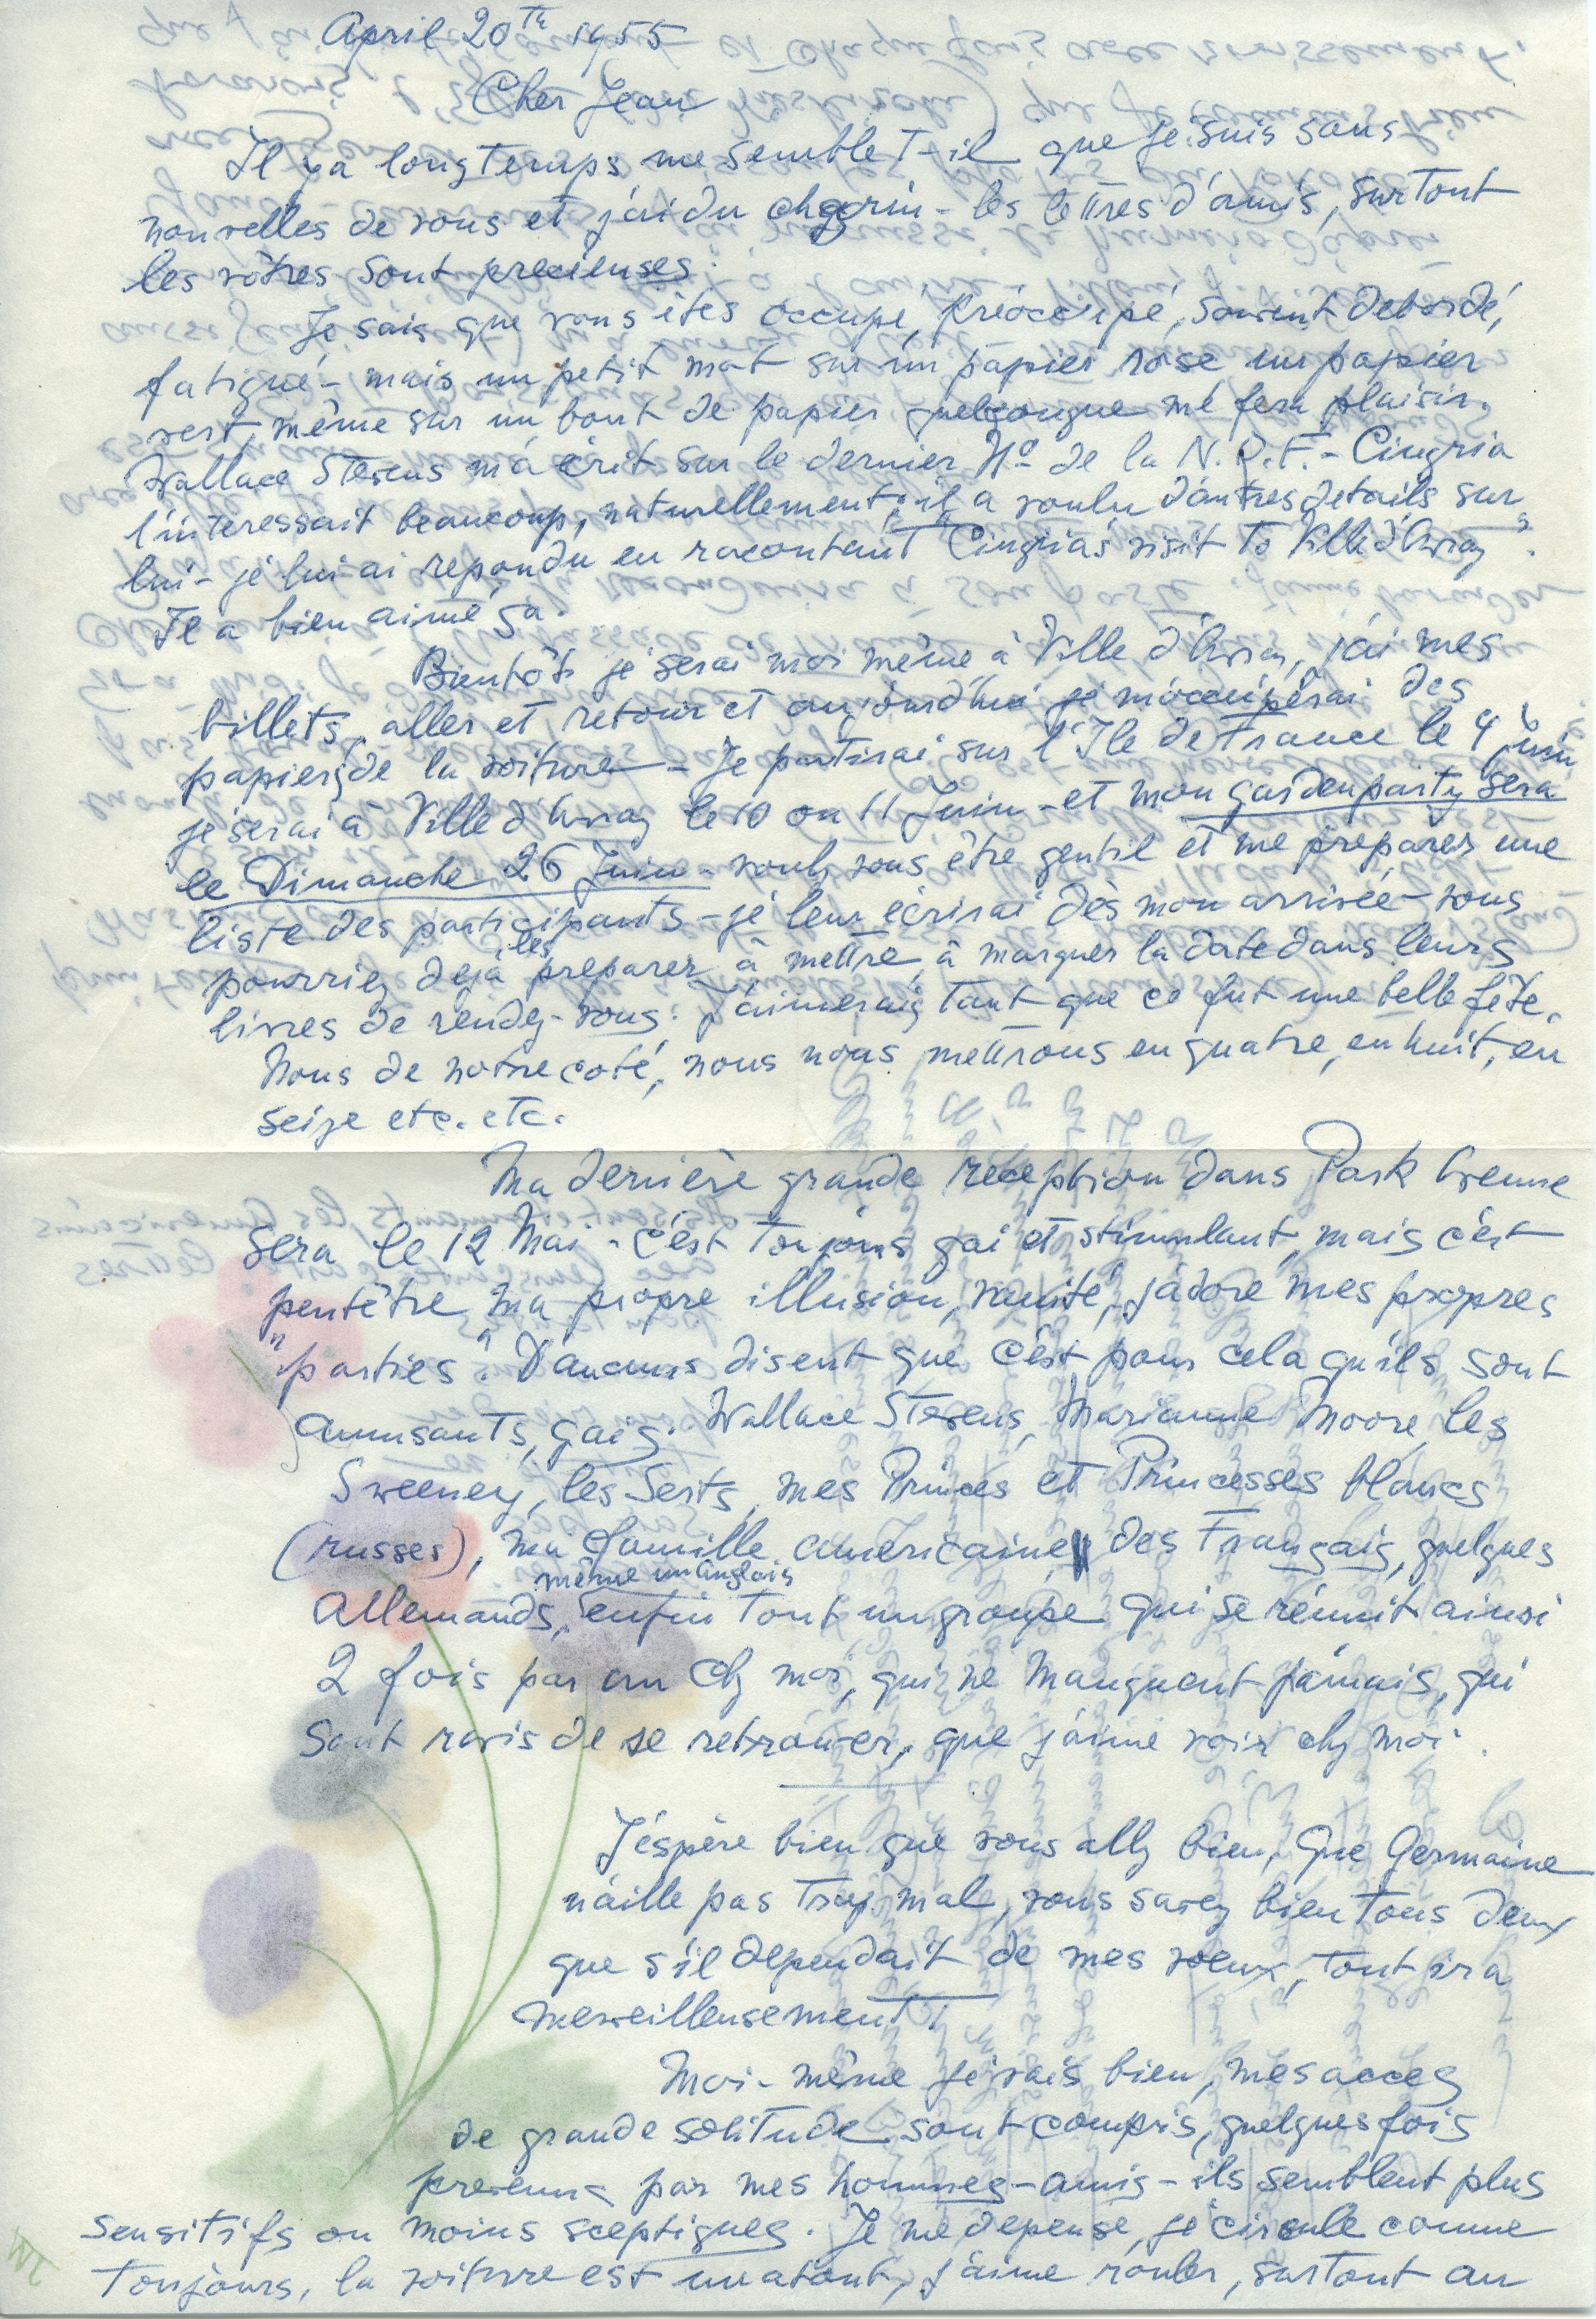 April 20th 1955
Cher Jean
Il y a longtemps me semble t-il que je suis sans
nouvelles de vous et j'ai du chagrin - les lettres d'amis, surtout
les vôtres sont precieuses.
Je sais que vous êtes occupé, préoccupé, souvent debordé,
fatigué - mais un petit mot sur un papier rose un papier
vert, même sur un bout de papier quelconque me fera plaisir.
Wallace Stevens m'a écrit sur le dernier No de la N.R.F. - Cingria
l'interessait beaucoup, naturellement, il a voulu d'autres details sur
lui - je lui ai repondu en racontant "Cingria's visit to Ville d'Avray".
Il a bien aimé ça.
Bientôt je serai moi même à Ville d'Avray, j'ai mes
billets, aller et retour et aujourd'hui je m'occuperai des
papiers de la voiture - Je partirai sur l'Ile de France le 4 Juin
je serai à Ville d'Avray le 10 ou 11 Juin - et mon gardenparty sera
le Dimanche 26 Juin - voulez vous être gentil et me preparer une
liste des participants - je leur écrirai dès mon arrivée - vous
pourriez dejà les preparer à mettre, à marquer la date dans leurs
livres de rendez-vous. J'aimerais tant que ce fut une belle fête.
Nous de notre coté, nous nous mettrons en quatre, en huit, en
seize etc. etc.
Ma dernière grande reception dans Park Avenue
sera le 12 Mai - c'est toujours gai et stimulant, mais c'est
peutêtre ma propre illusion, vanité, j'adore mes propres
"parties". D'aucuns disent que c'est pour cela qu'ils sont
amusants, gais. Wallace Stevens, Marianne Moore, les
Sweeney, les Serts, mes Princes et Princesses blancs
(russes), ma famille americaine, des Français, quelques
Allemands, même un anglais, enfin tout un groupe qui se réunit ainsi
2 fois par an chez moi, qui ne manquent jamais, qui
sont ravis de se retrouver, que j'aime voir chez moi.
J'éspère bien que vous allez bien, Que Germaine
n'aille pas trop mal, vous savez bien tous deux
que s'il dependait de mes voeux, tout ira
merveilleusement!
Moi-même je vais bien, mes acces
de grande solitude sont compris, quelques fois
prevenus par mes hommes-amis - ils semblent plus
sensitifs ou moins sceptiques. Je me depense, je circule comme
toujours, la voiture est un atout, j'aime rouler, surtout au